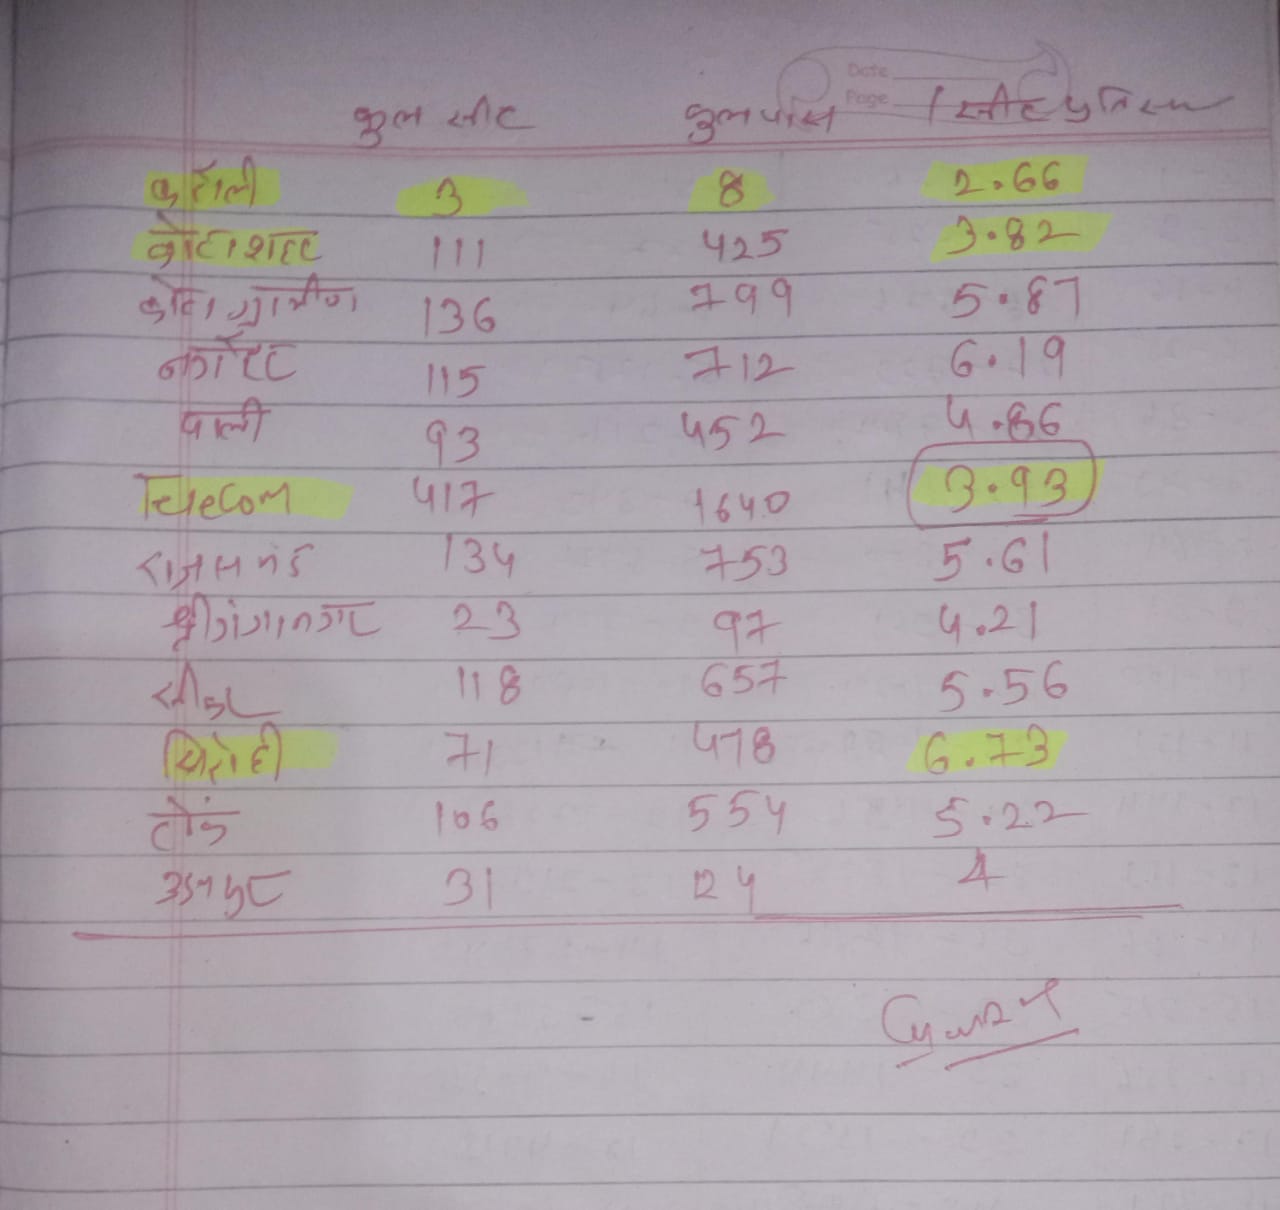 Date
Page
कुल सीट कुल पास सीट प्रतिशत
करौली 3 8 2.66
कोटा शहर 111 425 3.82
कोटा ग्रामीण 136 799 5.87
नागौर 115 712 6.19
पाली 93 452 4.86
Telecom 417 1640 3.93
राजसमंद 134 753 5.61
श्रीगंगानगर 23 97 4.21
सीकर 118 657 5.56
सिरोही 71 478 6.73
टोंक 106 554 5.22
उदयपुर 31 124 4